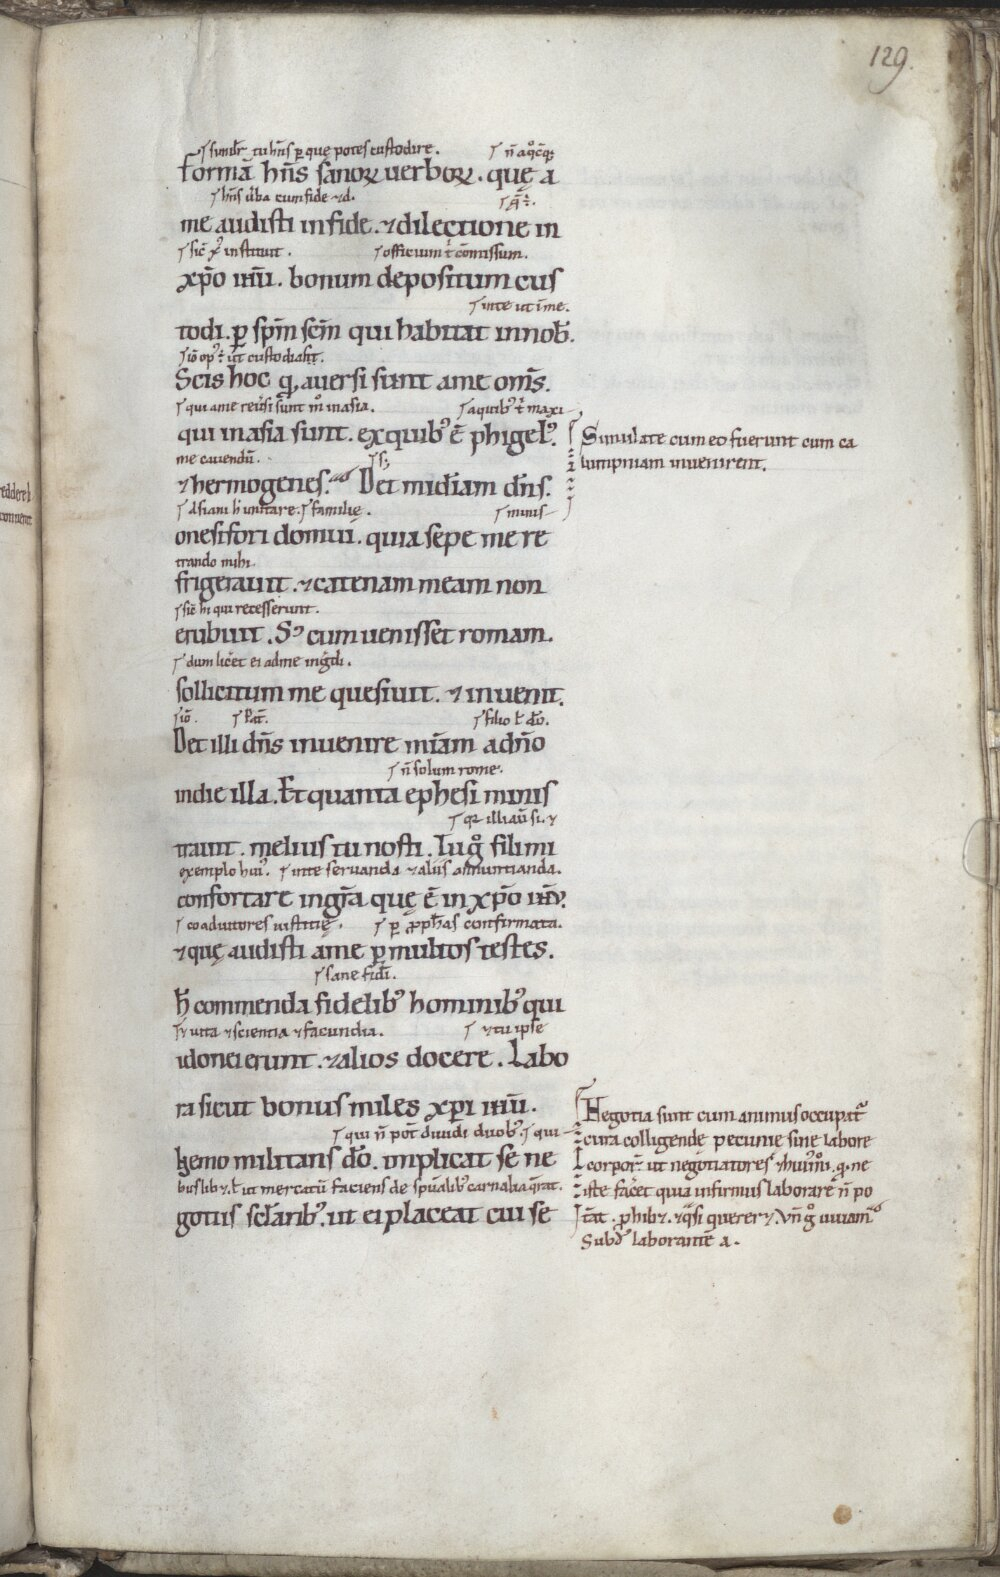 129.
simil'r tu hñs ꝑ quę potes custodire. ñ a q̊cq̨
formā hñs sanoꝝ uerboꝝ. quę a
hñs uba cum fide ⁊ d.
me audisti in fide. ⁊ dilectione in
sic̄ instituit. officium t̄ cōmissum.
xp̄o ihū. bonum depositum cus
in te ut ī me.
todi. ꝑ sp̄m sc̄m qui habitat in nob̄.
iō op' ē ut custodiaſ.
Scis hoc q̨ auersi sunt a me om̄s.
qui a me reuersi sunt m̊ in asia. a quib' ē maxi
qui in asia sunt. ex quib' ē phigel'.
me cauendū.
⁊ hermogenes. Det mīdiam dn̄s.
Simulate cum eo fuerunt cum ca
lumpniam inuenirent.
familię. minis
onesifori domui. quia sepe me re
trando mihi.
frigerauit. ⁊ catenam meam non
sic̄ hi qui recesserunt.
erubuit. S; cum uenisset romam.
dum licet ei ad me ingdi.
sollicitum me quesiuit. ⁊ inuenit.
iō. filio t̄ dō.
Det illi dn̄s inuenire mīam a dño
ñ solum rome.
in die illa. Et quanta ephesi minis
trauit. melius tu nosti. Tu g̊ fili mi
exemplo hui'. in te seruanda ⁊ aliis annuntianda.
confortare in gr̄a quę ē in xp̄o ihū.
coadiutores iustitię. ꝑ ꝓph̄as confirmata.
⁊ quę audisti a me ꝑ multos testes.
sane fidi.
h̄ commenda fidelib' hominib' qui
uita ⁊ scientia ⁊ facundia. ⁊ tu ipse
idonei erunt. ⁊ alios docere. Labo
ra sicut bonus miles xp̄i ihū.
qui ñ pōt diuidi duob'. qui
Nemo militans dō. implicat se ne
buslib; t̄ ut mercatū faciens de spūalib' carnalia q̄rat.
gotiis sc̄larib'. ut ei placeat cui se
Negotia sunt cum animus occupat'
cura colligende pecunie sine labore
corpor'. ut negotiatores ⁊ hui'm̊i. q̨ ne
iste facet quia infirmus laborare ñ po
tat. ꝓhib; ⁊ q̄si querer; Vn̄ g̊ uiuam'
Subd' laborantē a.